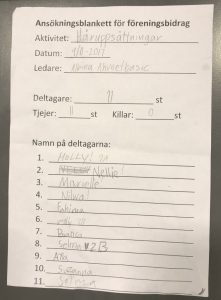 Ansökningsblankett för föreningsbidrag
Aktivitet: Håruppsättningar
Datum: 9/10-2017
Ledare: Amina
Deltagare: 11 st
Tjejer: 11 st Killar: 0 st
Namn på deltagarna:
1. HOLLY!
2. Nellie!
3. Marielle
4. Nilwa!
5. Fatima
6.
7. Bianca
8. Selma
9. Aya
10. Susanna
11.